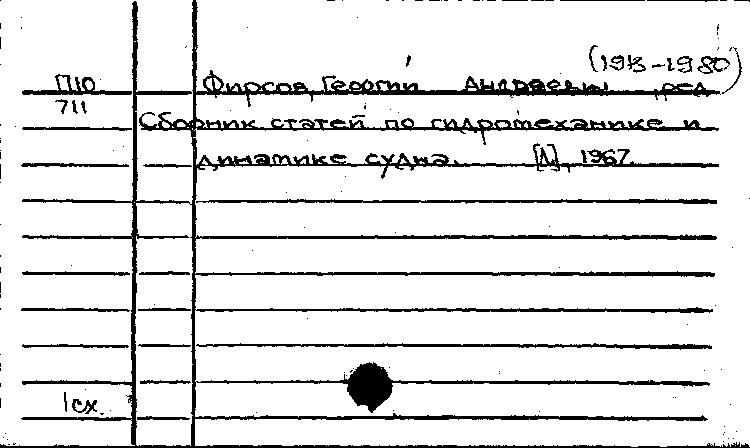 (1913-1980)
П10 Фирсов, Георгий Андреевич, ред.
711 Сборник статей по гидромеханике и
динамике судна. [Л], 1967.
1сх.